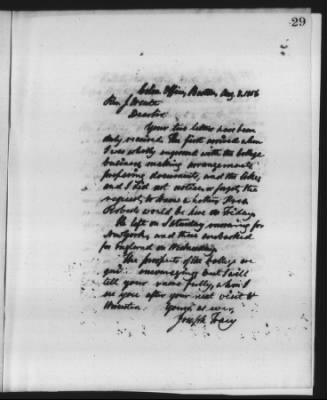 29
Colon. Office, Boston, Aug. 8, 1856
Rev. J.
Dear Sir
Your two letters have been
duly received. The first arrived when
I was wholly engrossed with the College
business making arrangements
preparing documents, and the like,
and I did not notice or forgot the
request, to know whether Pres.
Roberts would be here on Friday.
He left on Saturday morning for
New York, and there embarked
for England on Wednesday.
The prospects of the College are
quite encouraging but I will
tell you more fully, when I
see you after your next visit to
Yours as ever,
Joseph Tracy